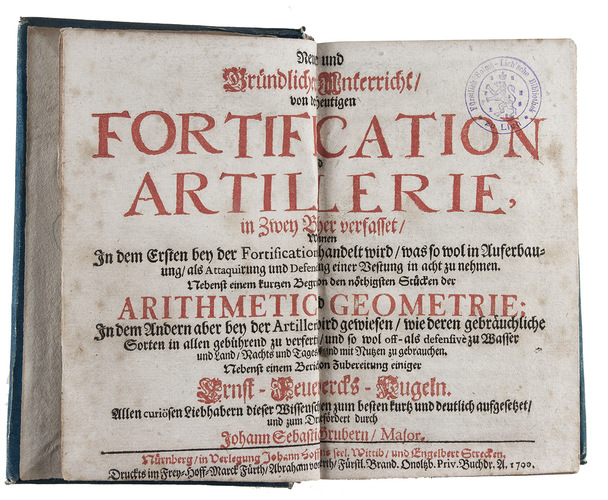 Neuer und
Gründlicher Unterricht/
von der heutigen
FORTIFICATION
ARTILLERIE,
in Zwey Bücher verfasset/
In dem Ersten bey der Fortification handelt wird/ was so wol in Auferbau-
ung/ als Attaquirung und Defendirung einer Vestung in acht zu nehmen.
Nebenst einem kurtzen Begriff von den nöthigsten Stücken der
ARITHMETIC GEOMETRIE;
In dem Andern aber bey der Artillerie wird gewiesen/ wie deren gebräuchliche
Sorten in allen gebührend zu verfertigen/ und so wol off- als defensivè zu Wasser
und Land/ Nachts und Tages mit Nutzen zu gebrauchen.
Nebenst einem Bericht von Zubereitung einiger
Ernst-Feuerwercks-Kugeln.
Allen curiösen Liebhabern dieser Wissenschafften zum besten kurtz und deutlich aufgesetzet/
und zum Druck befördert durch
Johann Sebastian Grubern/ Major.
Nürnberg/ in Verlegung Johann Hoffmanns seel. Wittib/ und Engelbert Strecken.
Druckts im Frey-Hoff-Marck Fürth/ Abraham von Werth/ Fürstl. Brand. Onoltzb. Priv. Buchdr. A. 1700.
Fürstlich Solms-Lich'sche Bibliothek
zu Lich